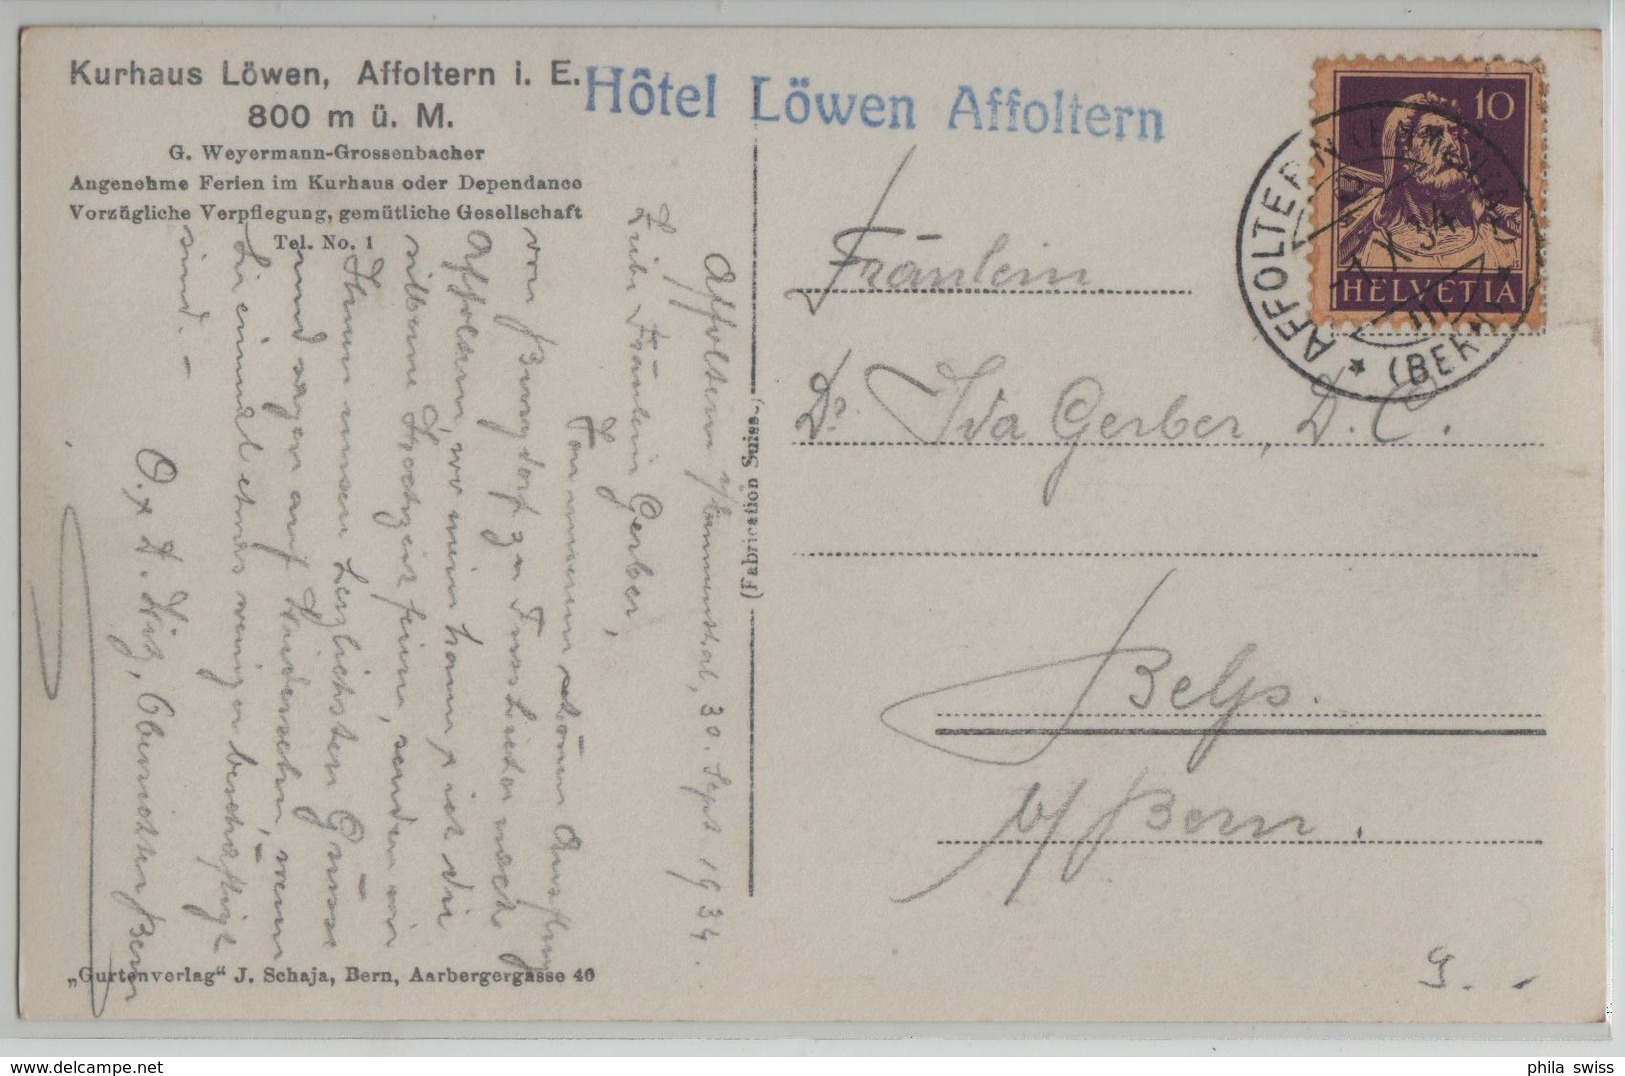 Kurhaus Löwen, Affoltern i. E.
800 m ü. M.
G. Weyermann-Grossenbacher
Angenehme Ferien im Kurhaus oder Dependance
Vorzügliche Verpflegung, gemütliche Gesellschaft
Tel. No. 1
Hôtel Löwen Affoltern
10
HELVETIA
AFFOLTERN (EMMENTAL)
1 X 34
(BERN)
Affoltern i/Emmenthal, 30. Sept. 1934.
Liebe Fräulein Gerber,
Von unserem schönen Ausflug
von Burgdorf zu Fuss hieher nach
Affoltern, wo mein
silberne Hochzeit feiern, senden wir
Ihnen unsere herzlichsten Grüsse
und sagen auf Wiedersehen, wenn
Sie einmal etwas weniger beschäftigt
sind. –
Bern
(Fabrication Suisse.)
Fräulein
Dr. Ida Gerber, D. C.
Belp.
b/ Bern.
G.
„Gurtenverlag“ J. Schaja, Bern, Aarbergergasse 40
phila swiss